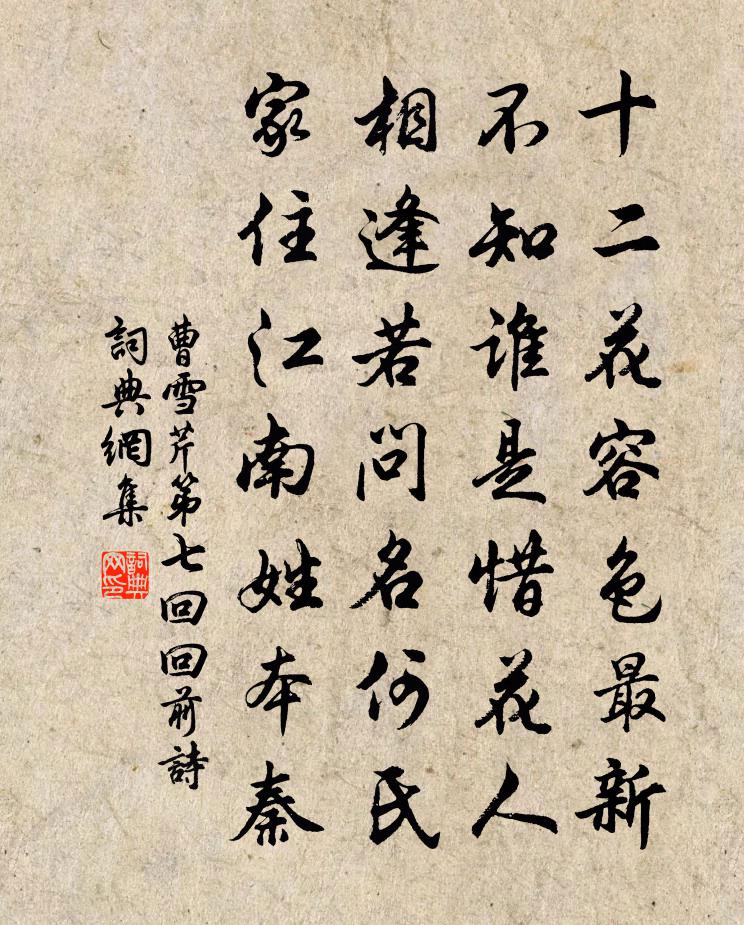 十二花容色最新
不知誰是惜花人
相逢若問名何氏
家住江南姓本秦
曹雪芹第七回回前詩
詞典網集
詞典网印